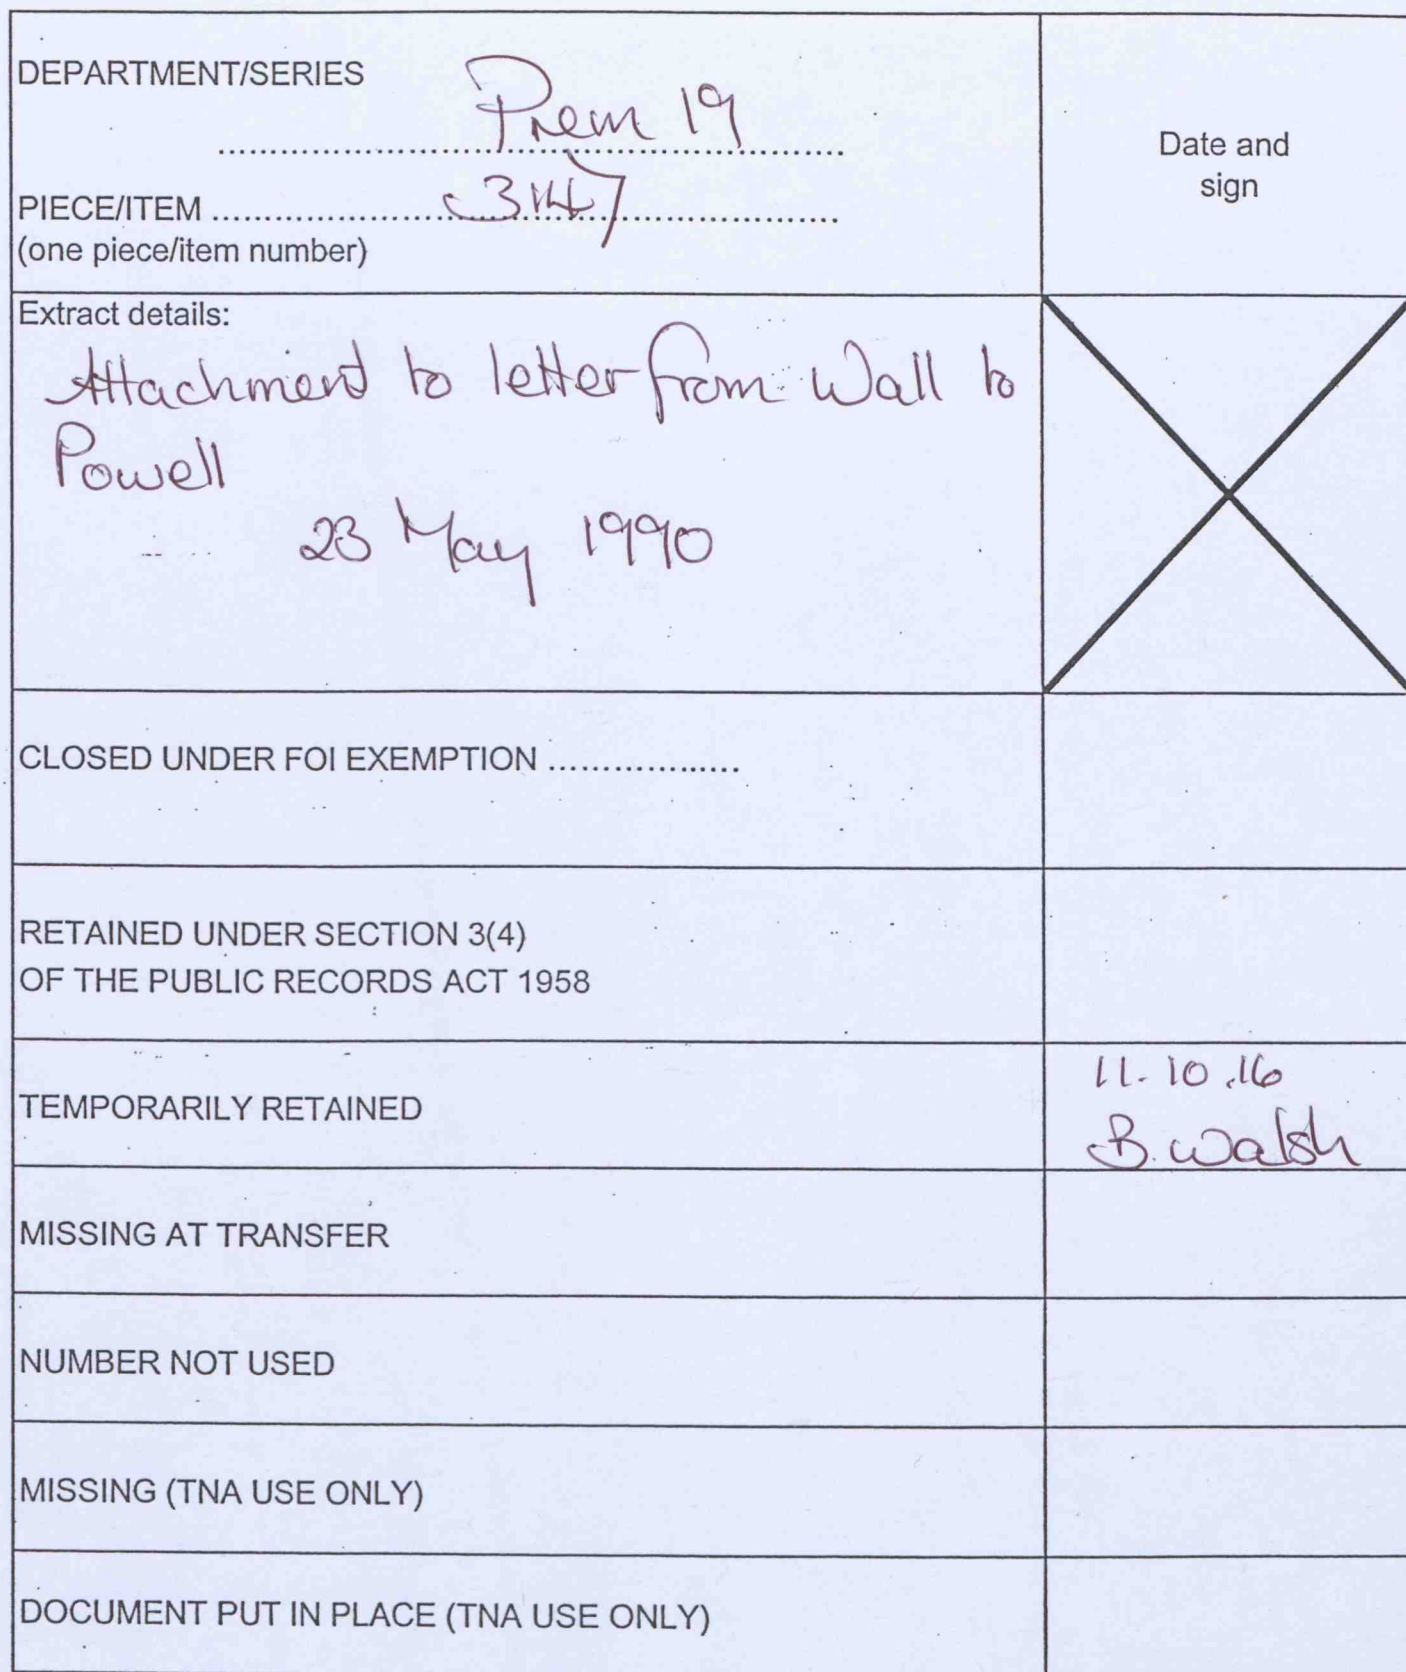 DEPARTMENT/SERIES
Prem 19
Date and
sign
PIECE/ITEM
3147
(one piece/item number)
Extract details:
Attachment to letter from Wall to
Powell
23 May 1990
CLOSED UNDER FOI EXEMPTION
RETAINED UNDER SECTION 3(4)
OF THE PUBLIC RECORDS ACT 1958
TEMPORARILY RETAINED
11.10.16
B. Walsh
MISSING AT TRANSFER
NUMBER NOT USED
MISSING (TNA USE ONLY)
DOCUMENT PUT IN PLACE (TNA USE ONLY)